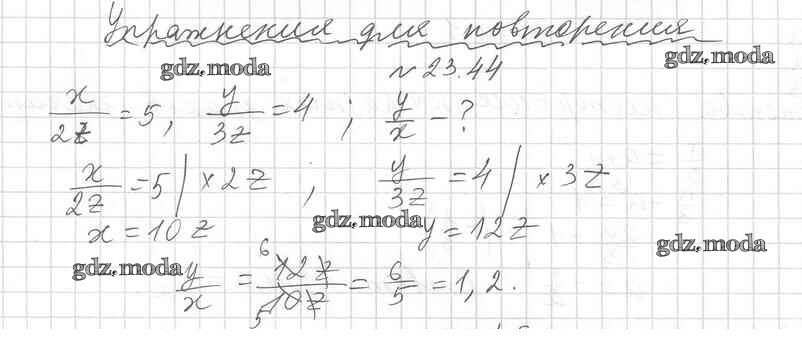 Упражнения для повторения
gdz.moda
gdz.moda
№ 23.44
x/2z = 5, y/3z = 4 ; y/x - ?
x/2z = 5 | × 2z ; y/3z = 4 | × 3z
x = 10z y = 12z
gdz.moda
gdz.moda
gdz.moda
y/x = 6 12z / 5 10z = 6/5 = 1,2.